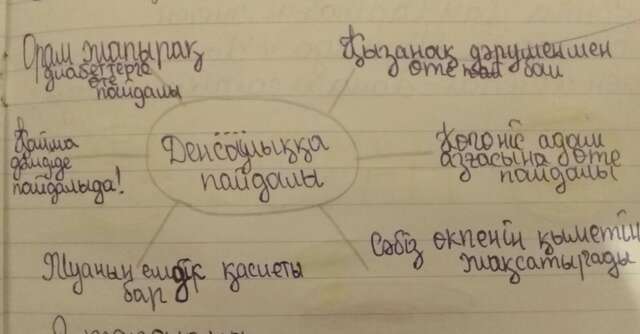 Орам жапырақ
диабеттерге
өте
пайдалы
Қызанақ дәруменмен
өте бай
Қайма
дәмдіде
пайдалыда!
Денсаулыққа
пайдалы
Көгөніс адам
ағзасына өте
пайдалы
Жуаның емдік қасиеты
бар
Сәбіз өкпенін қыметін
жақсатыгады